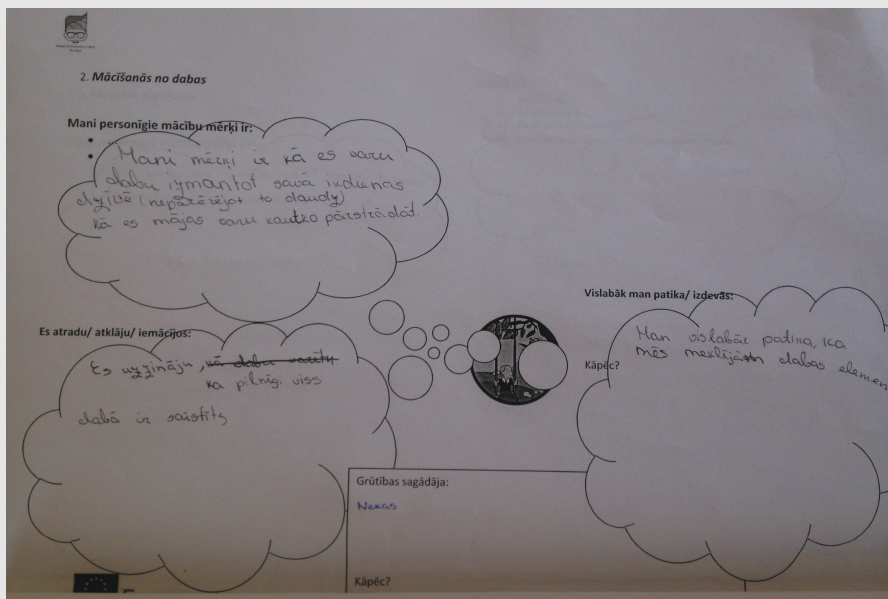 2. Mācīšanās no dabas
Mani personīgie mācību mērķi ir:
Mani mērķi ir kā es varu
dabu izmantot savā ikdienas
dzīvē (nepārtērējot to daudz)
kā es mājās varu kautko pārstrādāt.
Es atradu/ atklāju/ iemācījos:
Es uzzināju, kā dabu varētu
ka pilnīgi viss
dabā ir saistīts
Vislabāk man patika/ izdevās:
Man vislabāk patika, ka
mēs meklējām dabas elemen
Kāpēc?
Grūtības sagādāja:
Nekas
Kāpēc?